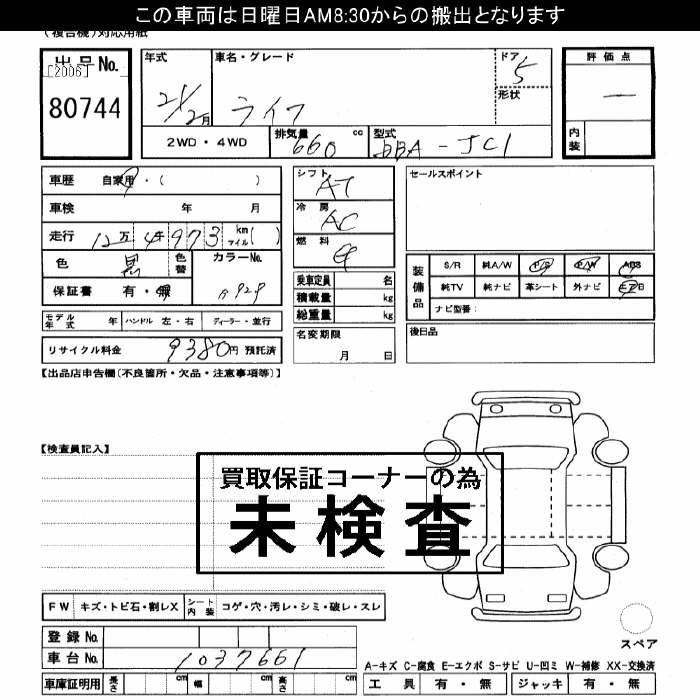 この車両は日曜日AM8:30からの搬出となります
(複合機)対応用紙
出品No. 年式 車名・グレード ドア 評価点
[2006] 5
80744 21/2月 ライフ 形状 一
2WD・4WD 排気量 660 cc 型式 DBA-JC1 内装
車歴 自家用・( ) シフト AT セールスポイント
車検 年 月 冷房 AC
走行 12万4千973 km マイル( ) 燃料
色 黒 色替 カラーNo. 乗車定員 名 装備品 S/R 純A/W P/S P/W ABS
保証書 有・無 B929 積載量 kg 純TV 純ナビ 革シート 外ナビ
総重量 kg ナビ型番:
モデル年式 年 ハンドル 左・右 ディーラー・並行 名変期限 後日品
リサイクル料金 9380円 預託済 月 日
【出品店申告欄(不良箇所・欠品・注意事項等)】
【検査員記入】
買取保証コーナーの為
未検査
FW キズ・トビ石・割レX シート内装 コゲ・穴・汚レ・シミ・破レ・スレ
登録No.
スペア
車台No. 1037661
A-キズ C-腐食 E-エクボ S-サビ U-凹ミ W-補修 XX-交換済
車庫証明用 長さ cm 幅 cm 高さ cm 工具 有・無 ジャッキ 有・無